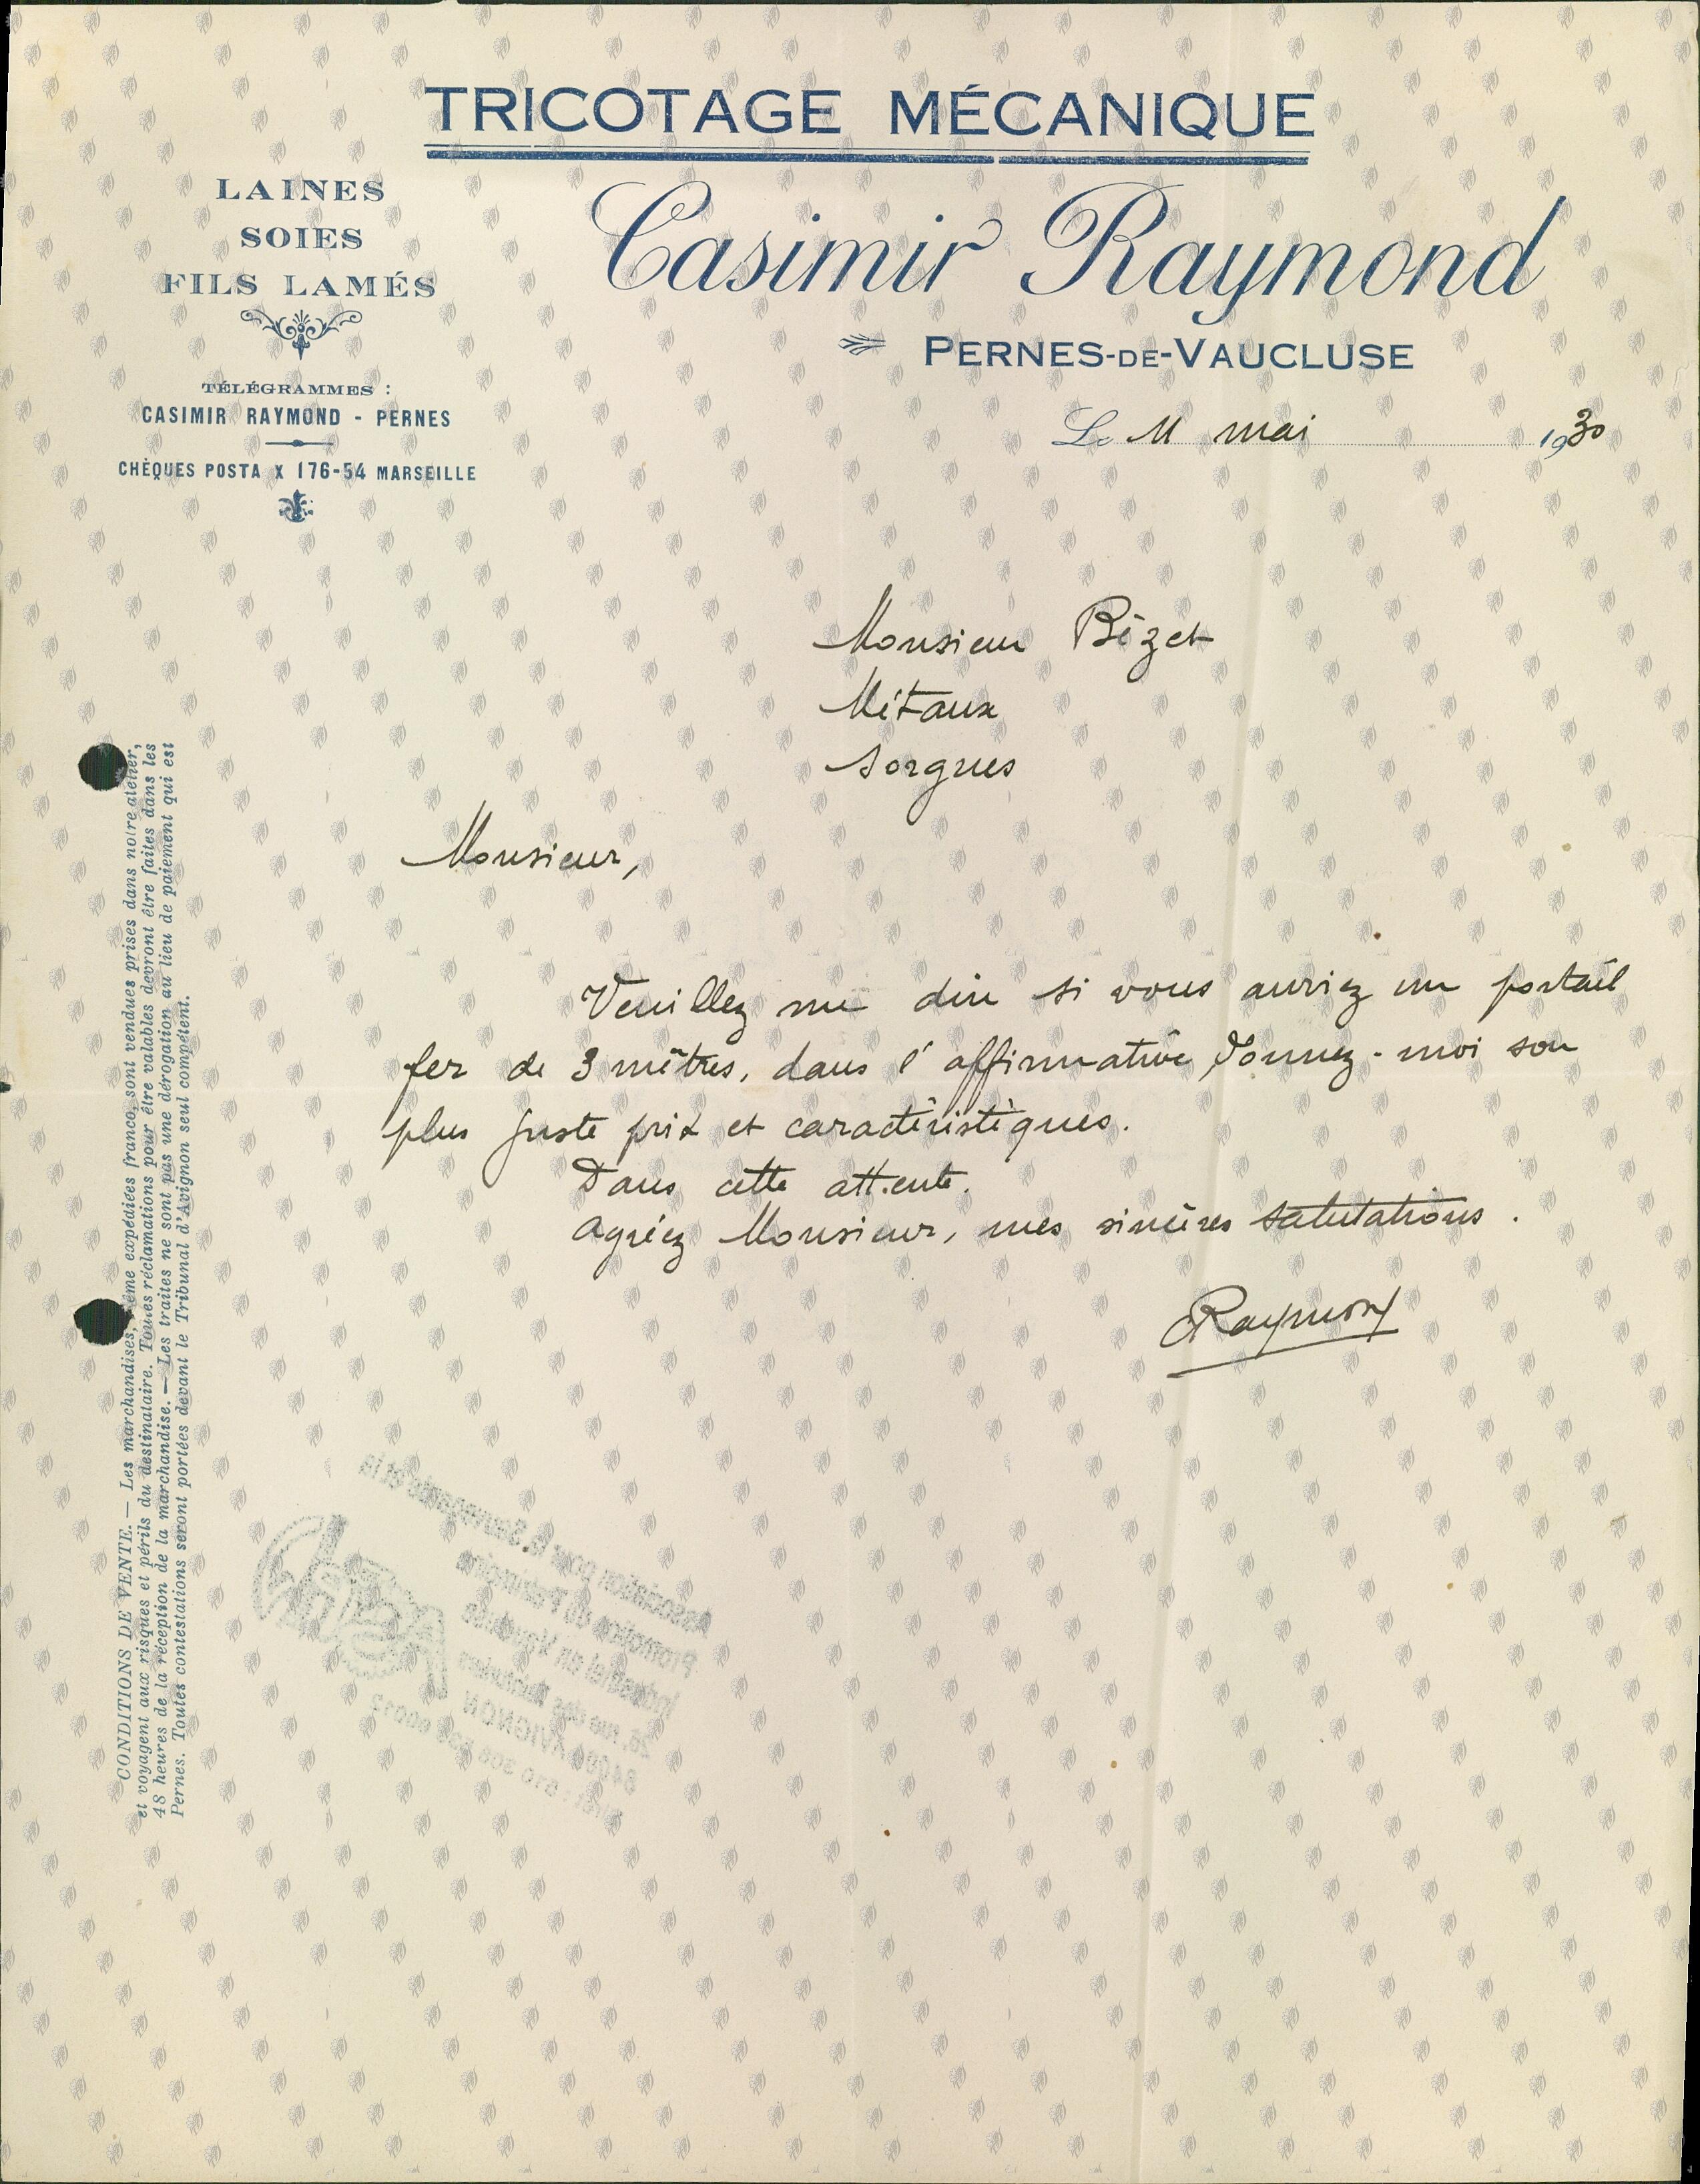 TRICOTAGE MÉCANIQUE
LAINES
SOIES
FILS LAMÉS
TÉLÉGRAMMES :
CASIMIR RAYMOND - PERNES
CHÈQUES POSTA X 176-54 MARSEILLE
Casimir Raymond
PERNES-DE-VAUCLUSE
Le 11 mai 1930
Monsieur Bézet
Métaux
Sorgues
Monsieur,
Veuillez me dire si vous auriez un portail
fer de 3 mètres, dans l'affirmative, donnez-moi son
plus juste prix et caractéristiques.
Dans cette attente.
Agréez Monsieur, mes sincères salutations.
Raymond
CONDITIONS DE VENTE. — Les marchandises, même expédiées franco, sont vendues prises dans notre atelier,
et voyagent aux risques et périls du destinataire. Toutes réclamations pour être valables devront être faites dans les
48 heures de la réception de la marchandise. — Les traites ne sont pas une dérogation au lieu de paiement qui est
Pernes. Toutes contestations seront portées devant le Tribunal d'Avignon seul compétent.
Association pour la Sauvegarde et la
Promotion du Patrimoine
Industriel en Vaucluse
rue des Teinturiers
AVIGNON